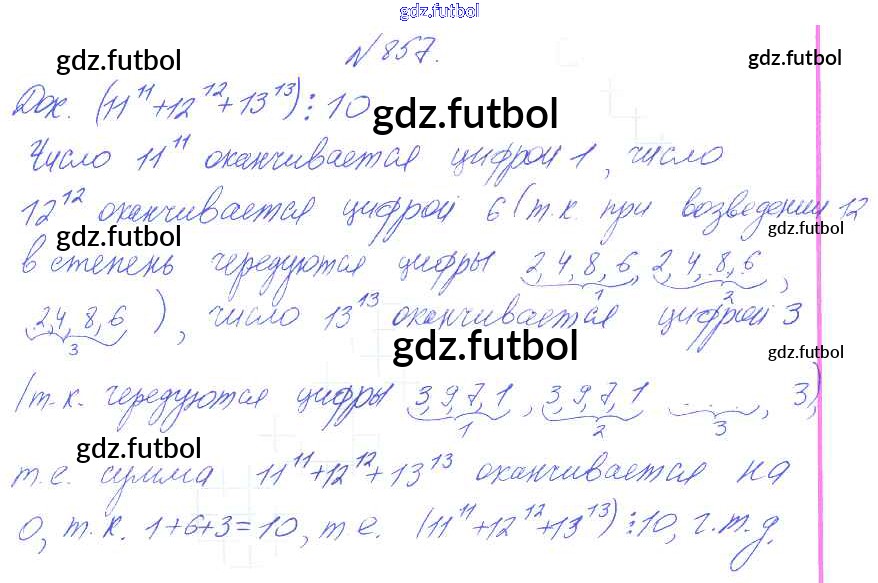 gdz.futbol
N 857.
gdz.futbol
gdz.futbol
Док. (11^11+12^12+13^13)⋮10
gdz.futbol
Число 11^11 оканчивается цифрой 1, число
12^12 оканчивается цифрой 6 (т.к. при возведении 12
gdz.futbol
gdz.futbol
в степень чередуются цифры 2,4,8,6, 2,4,8,6,
1 2
2,4,8,6), число 13^13 оканчивается цифрой 3
3
gdz.futbol
gdz.futbol
(т.к. чередуются цифры 3,9,7,1, 3,9,7,1 ...., 3),
1 2 3
gdz.futbol
т.е. сумма 11^11+12^12+13^13 оканчивается на
0, т.к. 1+6+3=10, т.е. (11^11+12^12+13^13)⋮10, ч.т.д.